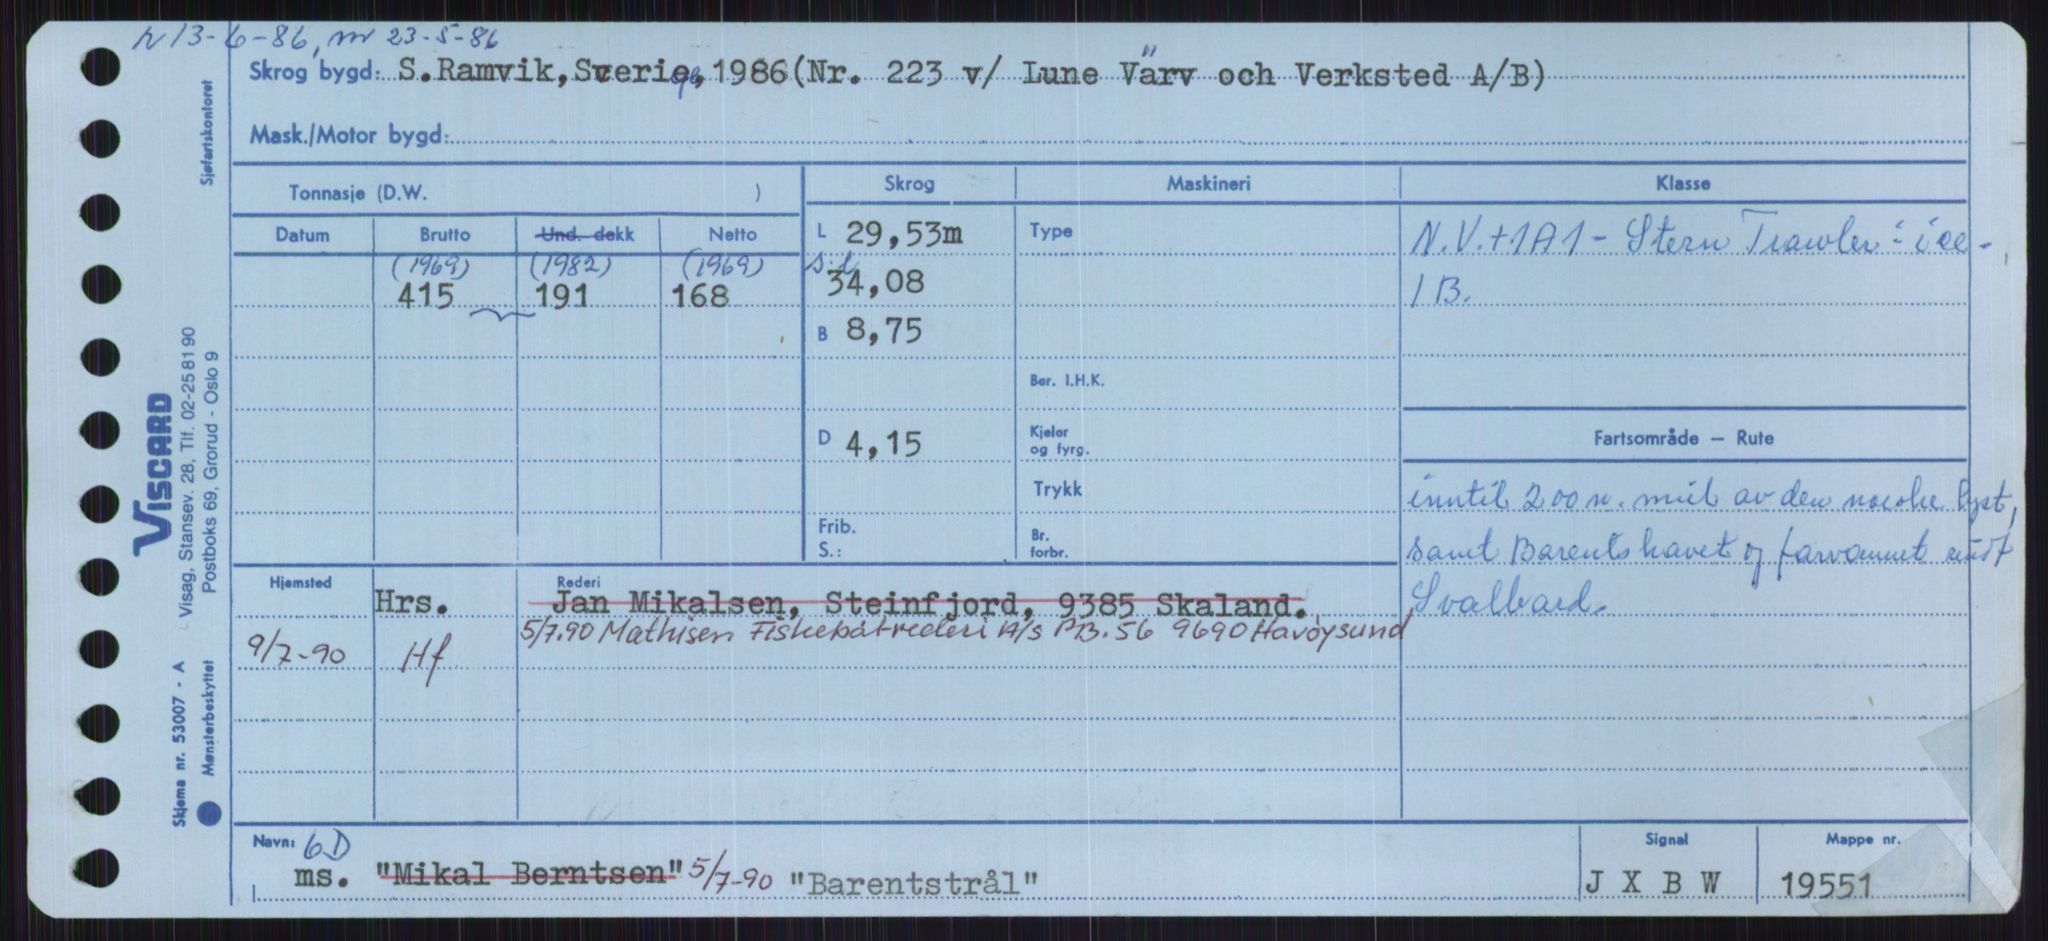 r 13-6-86, nr 23-5-86
Skrog bygd: S.Ramvik, Sverige, 1986(Nr. 223 v/ Lune Värv och Verksted A/B)
Mask./Motor bygd:
Tonnasje (D.W. )
Skrog Maskineri Klasse
Datum Brutto Und. dekk Netto
(1969) (1982) (1969)
415 191 168
L 29,53m
s.d. 34,08
B 8,75
D 4,15
Frib.
S.:
Type
Ber. I.H.K.
Kjeler
og fyrg.
Trykk
Br.
forbr.
N.V.+1A1 - Stern Trawler - ice -
1B.
Fartsområde – Rute
inntil 200 n. mil av den norske kyst,
samt Barentshavet og farvannet rundt
Svalbard.
Hjemsted Rederi
Hrs. Jan Mikalsen, Steinfjord, 9385 Skaland.
5/7.90 Mathisen Fiskebåtrederi A/S P.B. 56 9690 Havøysund
9/7-90 Hf
Navn: 6D
ms. "Mikal Berntsen" 5/7-90 "Barentstrål"
Signal
J X B W
Mappe nr.
19551
Sjøfartskontoret
VISCARD
Visag, Stansev. 28, Tlf. 02-25 81 90
Postboks 69, Grorud - Oslo 9
Skjema nr. 53007 - A
Mønsterbeskyttet